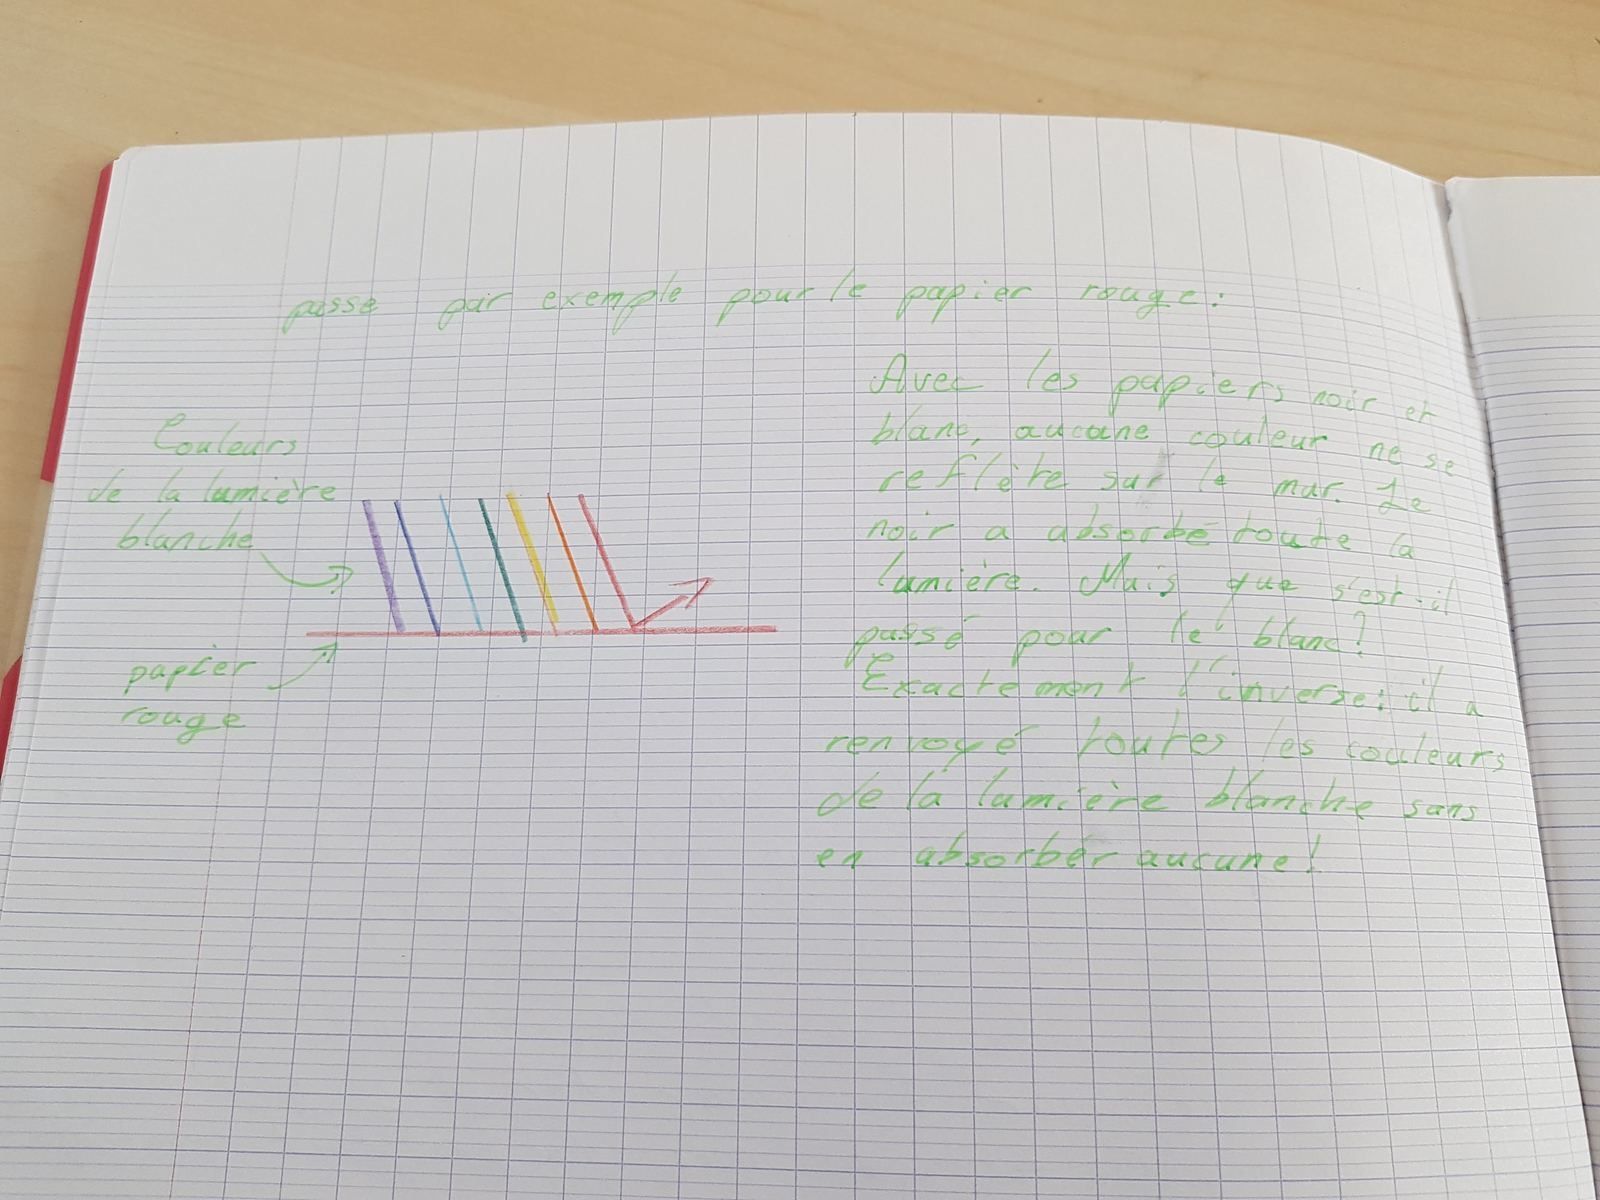 passe par exemple pour le papier rouge:
Couleurs
de la lumière
blanche
papier
rouge
Avec les papiers noir et
blanc, aucune couleur ne se
reflète sur le mur. Le
noir a absorbé toute la
lumière. Mais que s'est-il
passé pour le blanc?
Exactement l'inverse: il a
renvoyé toutes les couleurs
de la lumière blanche sans
en absorber aucune!